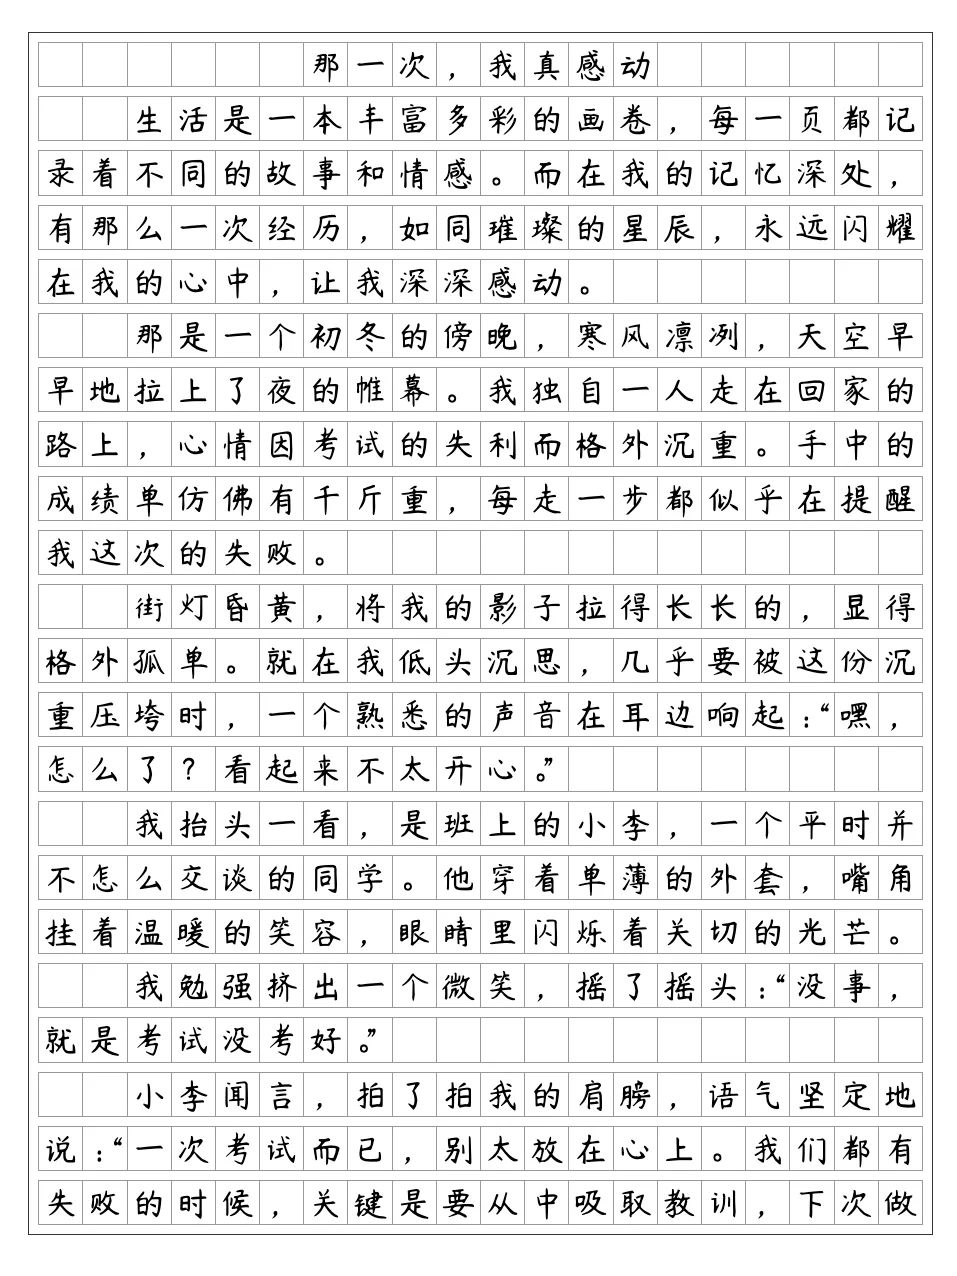 那一次，我真感动
生活是一本丰富多彩的画卷，每一页都记
录着不同的故事和情感。而在我的记忆深处，
有那么一次经历，如同璀璨的星辰，永远闪耀
在我的心中，让我深深感动。
那是一个初冬的傍晚，寒风凛冽，天空早
早地拉上了夜的帷幕。我独自一人走在回家的
路上，心情因考试的失利而格外沉重。手中的
成绩单仿佛有千斤重，每走一步都似乎在提醒
我这次的失败。
街灯昏黄，将我的影子拉得长长的，显得
格外孤单。就在我低头沉思，几乎要被这份沉
重压垮时，一个熟悉的声音在耳边响起：“嘿，
怎么了？看起来不太开心。”
我抬头一看，是班上的小李，一个平时并
不怎么交谈的同学。他穿着单薄的外套，嘴角
挂着温暖的笑容，眼睛里闪烁着关切的光芒。
我勉强挤出一个微笑，摇了摇头：“没事，
就是考试没考好。”
小李闻言，拍了拍我的肩膀，语气坚定地
说：“一次考试而已，别太放在心上。我们都有
失败的时候，关键是要从中吸取教训，下次做